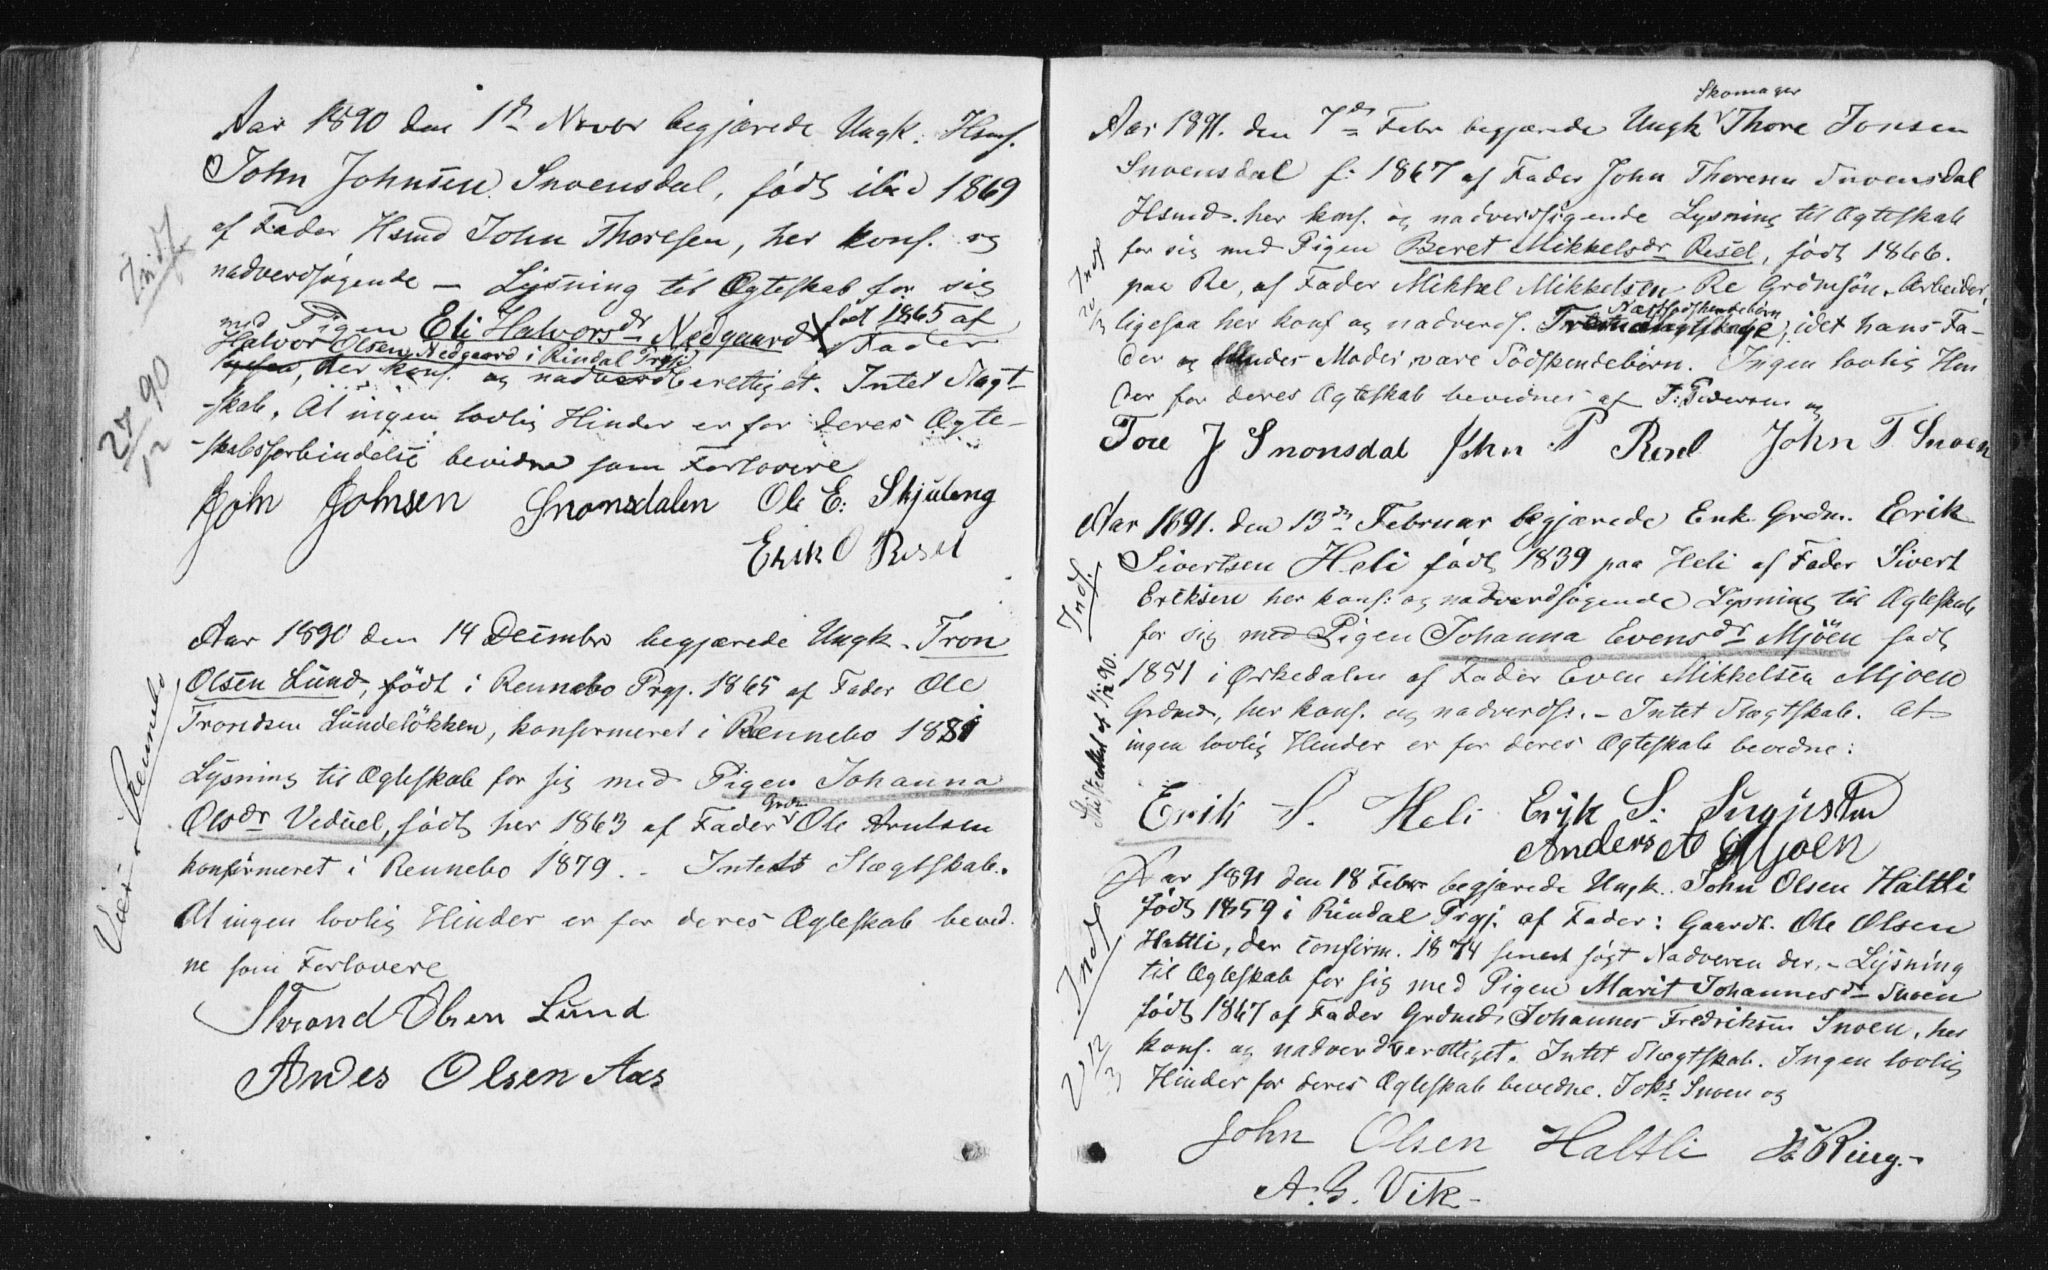 Aar 1890 den 1st Novbr begjærede Ungk. Hsmf.
John Johnsen Snoensdal, født ibid 1869
af Fader Hsmd John Thoresen, her konf. og
nadverdsøgende — Lysning til Ægteskab for sig
med Pigen Eli Halvorsdr Nedgaard født 1865 af
Halvor Olsen Nedgaard i Rindal Prgj Fader
her konf. og nadverdberettiget. Intet Slægt-
-skab. At ingen lovlig Hinder er for deres Ægte-
-skabsforbindelse bevidne som Forlovere
John Johnsen Snonsdalen Ole E. Skjuleng
Erik O Resel
Indf
27/12 90
Aar 1890 den 14 Decembr begjærede Ungk. Tron
Olsen Lund, født i Rennebo Prgj. 1865 af Fader Ole
Trondsen Lundeløkken, konfirmeret i Rennebo 1881
Lysning til Ægteskab for sig med Pigen Johanna
Olsdr Veduel, født her 1863 af Fader Grdm Ole Arntsen
konfirmeret i Rennebo 1879. - Intet Slægtskab.
At ingen lovlig Hinder er for deres Ægteskab bevid-
ne som Forlovere
Thrond Olsen Lund
Andes Olsen Aas
Viet i Rennebo
Skomager
Aar 1891. den 7de Febr begjærede Ungk Thore Jonsen
Snoensdal f: 1867 af Fader John Thoresen Snoensdal
Hsmd. her konf. og nadverdsøgende Lysning til Ægteskab
for sig med Pigen Beret Mikkelsdr Resel, født 1866.
paa Re, af Fader Mikkel Mikkelsen Re Grdmsøn. Arbeider,
ligesaa her konf og nadverds. Næstsødskendebørn, idet hans Fa-
der og hendes Moder vare Sødskendebørn. Ingen lovlig Hin
der for deres Ægteskab bevidnes af J. Pedersen og
Tore J Snonsdal John P Resel John T. Snoen
Indf
20/3
Aar 1891. den 13de Februar begjærede Enk. Grdm. Erik
Sivertsen Heli født 1839 paa Heli af Fader Sivert
Eriksen her konf: og nadverdsøgende Lysning til Ægteskab
for sig med Pigen Johanna Evensdr Mjøen født
1851 i Ørkedalen af Fader Even Mikkelsen Mjoen
Grdmd, her konf. og nadverds. - Intet Slægtskab. At
ingen lovlig Hinder er for deres Ægteskab bevidne:
Erik S. Heli Erik S.
Anders Mjoen
Indf.
Skiftattest af 1/12 90.
Aar 1891 den 18 Febr begjærede Ungk. John Olsen Haltli
født 1859 i Rindal Prgj. af Fader: Gaardb. Ole Olsen
Haltli, der confirm. 1874 senest søgt Nadveren der. - Lysning
til Ægteskab for sig med Pigen Marit Johannesdr Snoen
født 1867 af Fader Grdmd Johannes Fredriksen Snoen, her
konf. og nadverdberettiget. Intet Slægtskab. Ingen lovlig
Hinder for deres Ægteskab bevidne. Johs Snoen og
John Olsen Haltli Ring.
A. G. Vik
Indf
V 12/3